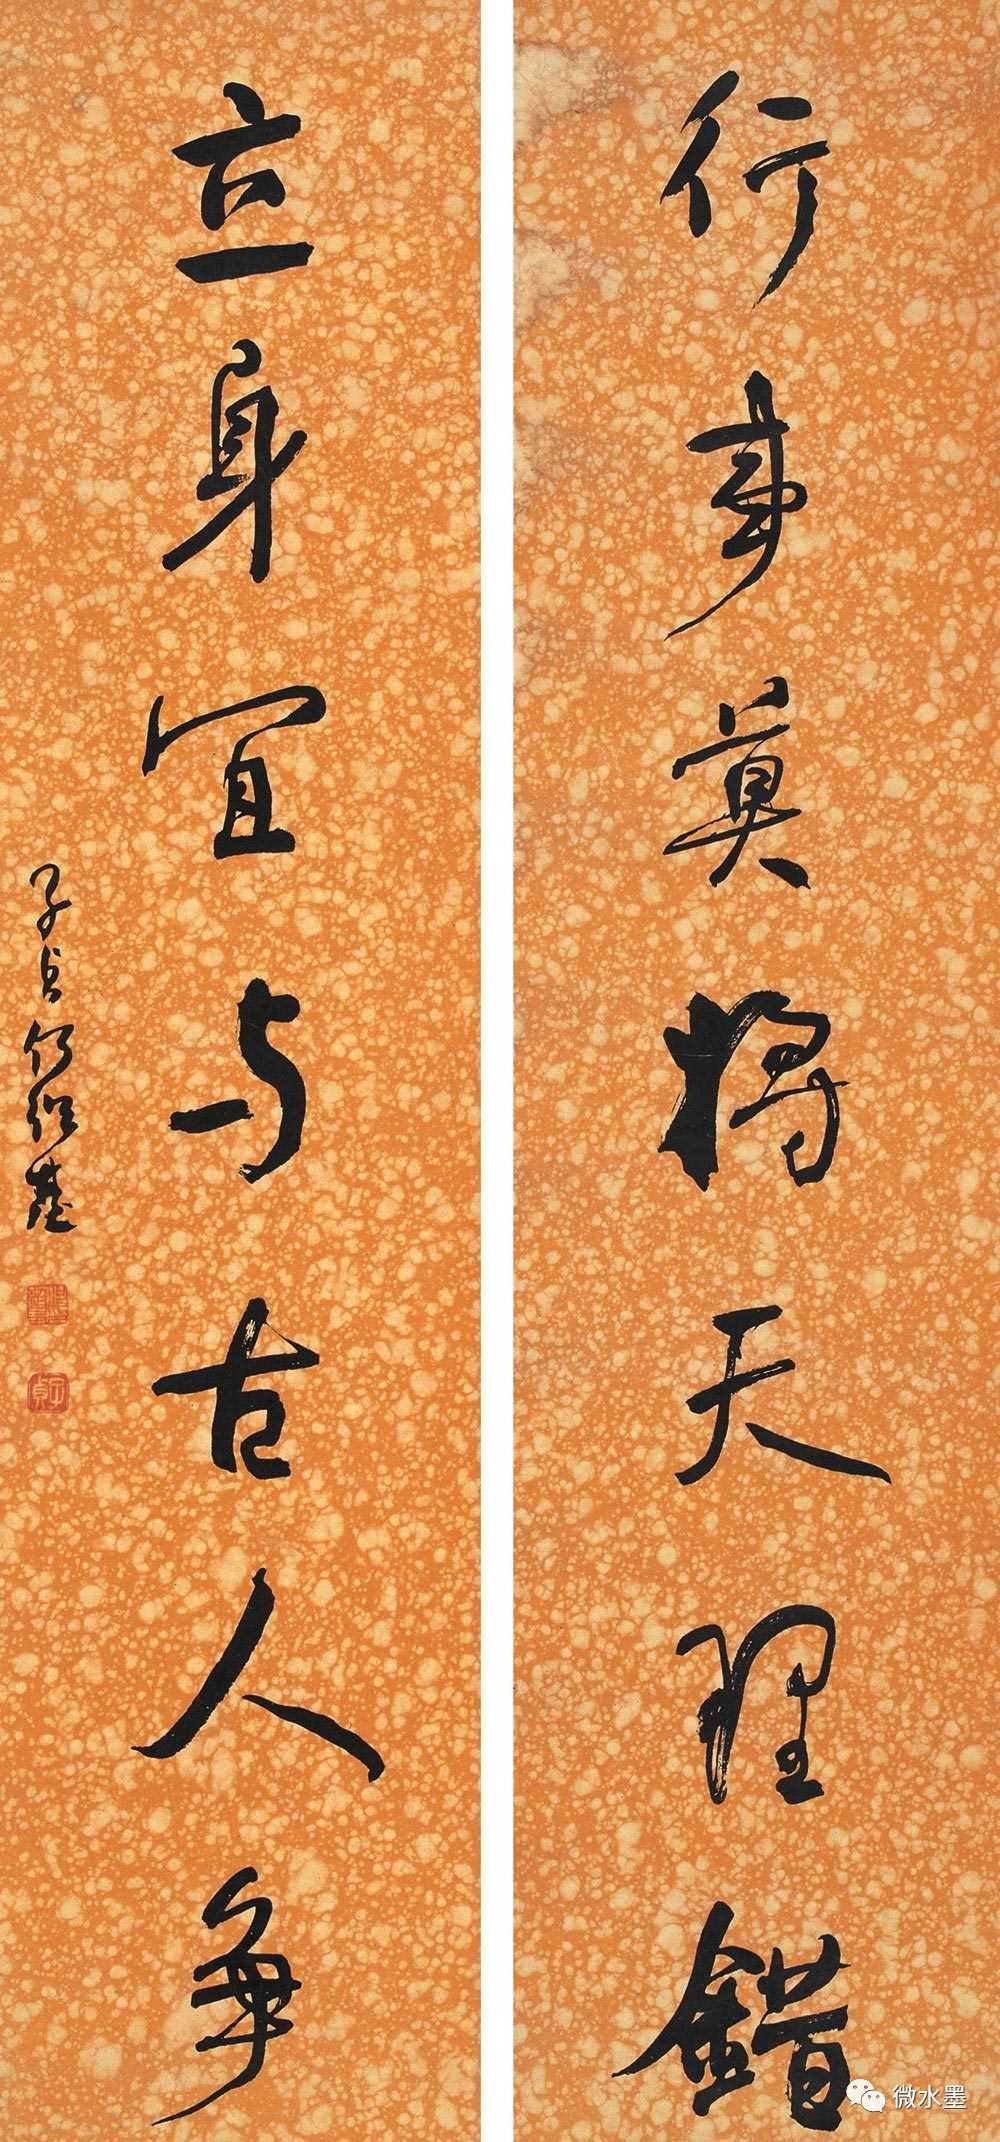 行事莫将天理錯
立身宜与古人争
子貞何紹基
微水墨